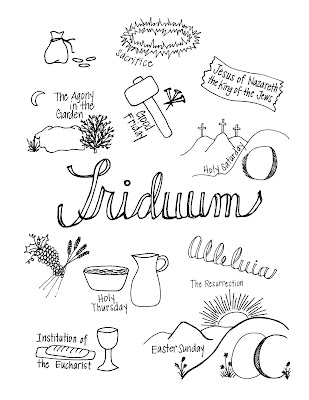 Sacrifice
Jesus of Nazareth
the King of the Jews
The Agony
in the
Garden
Good
Friday
Holy Saturday
Triduum
Alleluia
The Resurrection
Holy
Thursday
Institution of
the Eucharist
Easter Sunday